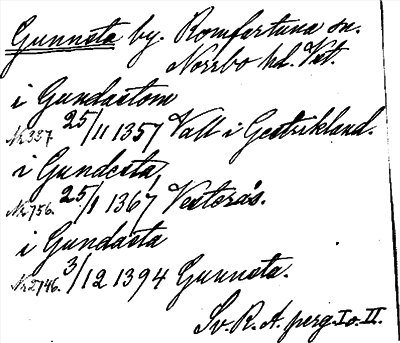 Gunnsta by. Romfartuna sn.
Norrbo hd. Vst.
i Gundastom
Nr 337. 25/11 1357 Vall i Gestrikland.
i Gundesta,
Nr 756. 25/1 1367 Vesterås.
i Gundasta
Nr 2746. 3/12 1394 Gunnsta.
Sv. R. A. perg. I o. II.